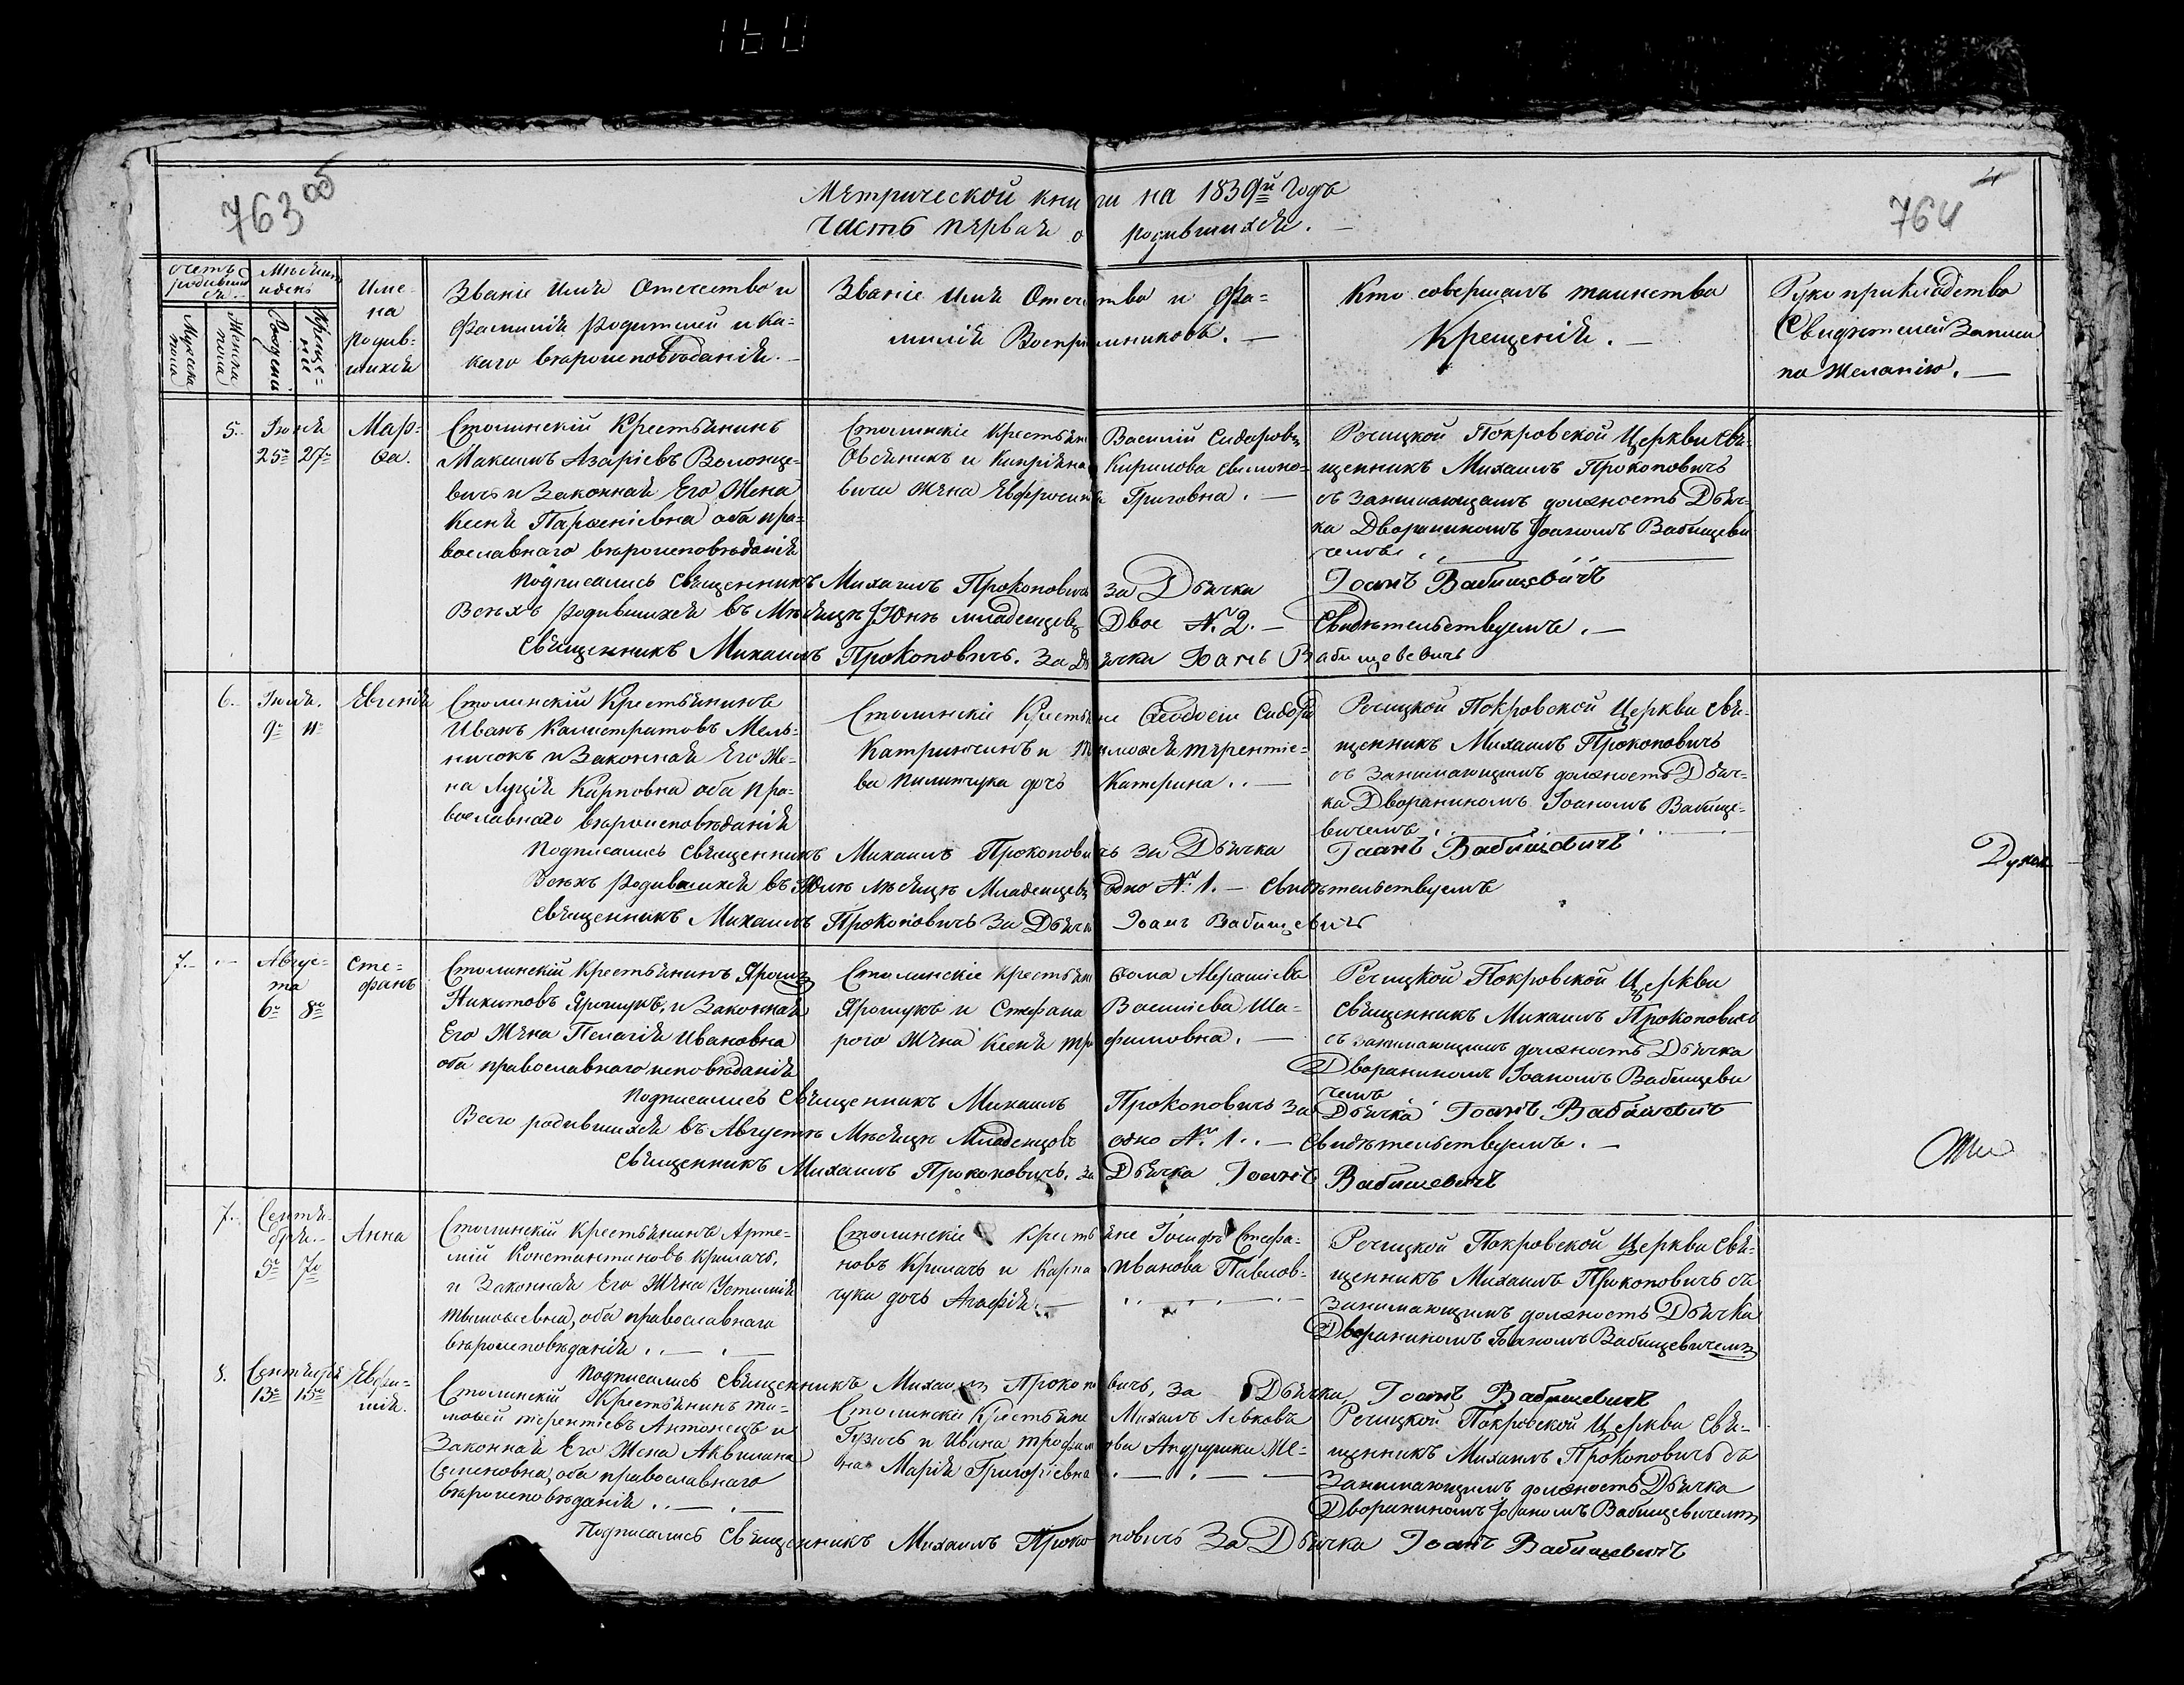 763 об
764
Метрической книги на 1839й Годъ
Часть первая о родившихся.
Счетъ родивших ся
Мужеска пола
Женска пола
Месяцъ и день
Рожденія
Крещенія
Име-
на
родив-
шихся
Званіе Имя Отечество и
Фамилія Родителей и ка-
каго вѣроисповѣданія.
Званіе Имя Отечество и Фа-
милія Воспріемниковъ.
Кто совершалъ таинства
Крещенія.
Рукоприкладства
Свидѣтелей Записи
по Желанію.
5.
Іюня
25 27
Мар-
ѳа.
Столинскій Крестьянинъ
Максимъ Азаріевъ Волонце-
вичъ и Законная Его Жена
Ксенія Парѳеніевна оба пра-
вославнаго вѣроисповѣданія
Столинскіе Крестьяне Василій Сидоровъ
Овсяникъ и Кипріяна Кирилова
вича жена Евфросинія Григовна.
Речицкой Покровской Церкви Свя-
щенникъ Михаилъ Прокоповичъ
съ занимающимъ должность Дьяч-
ка Дворяниномъ Іоаномъ Вабищеви
чемъ
Подписались Священникъ Михаилъ Прокоповичъ за Дьячка Іоанъ Вабищевичъ
Всехъ родившихся въ Мѣсяцѣ Юнѣ младенцовъ Двое № 2. Свидѣтельствуемъ.
Священникъ Михаилъ Прокоповичъ. За Дьячка Іоанъ Вабищевевичъ
6.
Іюля.
9 11
Евгенія
Столинскій Крестьянинъ
Иванъ Калистратовъ Мель-
ничокъ и Законная Его Же-
на Луція Карповна оба пра-
вославнаго вѣроисповѣданія
Столинскіе Крестьяне Ѳеодосій Сидора
Катриничинъ и Тимоѳея терентіе-
ва Пилипчука дочь Катерина.
Речицкой Покровской Церкви Свя-
щенникъ Михаилъ Прокоповичъ
съ занимающимъ должность Дьяч-
ка Дворяниномъ Іоаномъ Вабище-
вичемъ
Подписались Священникъ Михаилъ Прокоповичъ за Дьячка Іоанъ Вабищевичъ
Всехъ родившихся въ Юлѣ мѣсяцѣ Младенцевъ Одно № 1. Свидѣтельствуемъ
Священникъ Михаилъ Прокоповичъ За Дьячка Іоанъ Вабищевичъ
7.
Авгус-
та
6 8
Сте-
фанъ
Столинскій Крестьянинъ Ярошъ
Никитовъ Ярошукъ, и Законная
Его Жена Пелагія Ивановна
оба православнаго исповѣданія
Столинскіе крестьяне Ѳома Авраміевъ
Ярошукъ и Стефана Василіева Ша-
рого Жена Ксенія Трофимовна.
Речицкой Покровской Церкви
Священникъ Михаилъ Прокоповичъ
съ занимающимъ должность Дьячка
Дворяниномъ Іоаномъ Вабищеви
чемъ
Подписались Священникъ Михаилъ Прокоповичъ За Дьячка Іоанъ Вабищевичъ
Всего родившихся въ Августѣ Мѣсяцѣ Младенцовъ одно № 1. Свидѣтельствуемъ.
Священникъ Михаилъ Прокоповичъ. за Дьячка Іоанъ Вабищевичъ
7.
Сентя-
бря.
5 7
Анна
Столинскій Крестьянинъ Арте-
мій Константиновъ Кришачъ,
и Законная Его Жена Устинія
Тимоѳевна, оба православнаго
вѣроисповѣданія
Столинскіе Крестьяне Іосифъ Стефа-
новъ Кришачъ и Карпа Иванова Павлов-
чука дочь Агафія.
Речицкой Покровской Церкви Свя-
щенникъ Михаилъ Прокоповичъ съ
занимающимъ должность Дьячка
Дворяниномъ Іоаномъ Вабищевичемъ
Подписались Священникъ Михаилъ Прокоповичъ, за Дьячка Іоанъ Вабищевичъ
8.
Сентября
13 15
Евфи-
мія.
Столинскій Крестьянинъ Ти-
моѳей терентіевъ Антонецъ и
Законная Его Жена Акилина
Семеновна, оба православнаго
вѣроисповѣданія
Столинскіе Крестьяне Михаилъ Левковъ
Гузичъ и Ивана трофимова Же-
на Марія Григоріевна
Речицкой Покровской Церкви Свя-
щенникъ Михаилъ Прокоповичъ съ
Занимающимъ должность Дьячка
Дворяниномъ Іоаномъ Вабищевичемъ
Подписались Священникъ Михаилъ Прокоповичъ За Дьячка Іоанъ Вабищевичъ